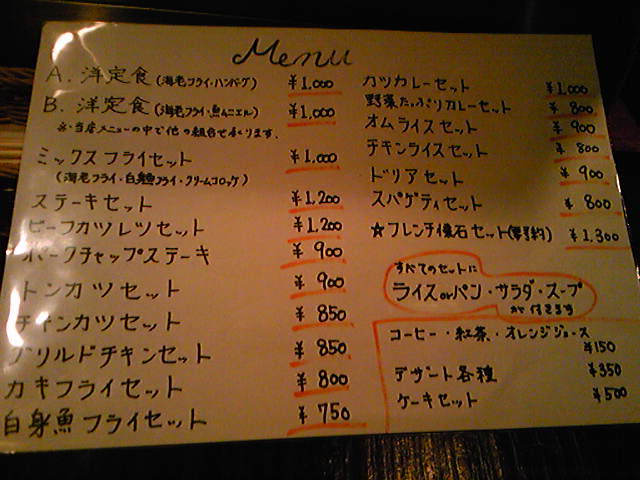 Menu
A. 洋定食(海老フライ・ハンバーグ) ¥1,000
B. 洋定食(海老フライ・魚ムニエル) ¥1,000
※当店メニューの中で他の組合せ承ります.
ミックスフライセット ¥1,000
(海老フライ・白身フライ・クリームコロッケ)
ステーキセット ¥1,200
ビーフカツレツセット ¥1,200
ポークチャップステーキ ¥900
トンカツセット ¥900
チキンカツセット ¥850
グリルドチキンセット ¥850
カキフライセット ¥800
白身魚フライセット ¥750
カツカレーセット ¥1,000
野菜たっぷりカレーセット ¥800
オムライスセット ¥900
チキンライスセット ¥800
ドリアセット ¥900
スパゲティセット ¥800
☆フレンチ懐石セット(要予約) ¥1,300
すべてのセットに
ライスorパン・サラダ・スープ
が付きます
コーヒー・紅茶・オレンジジュース
¥150
デザート各種 ¥350
ケーキセット ¥500